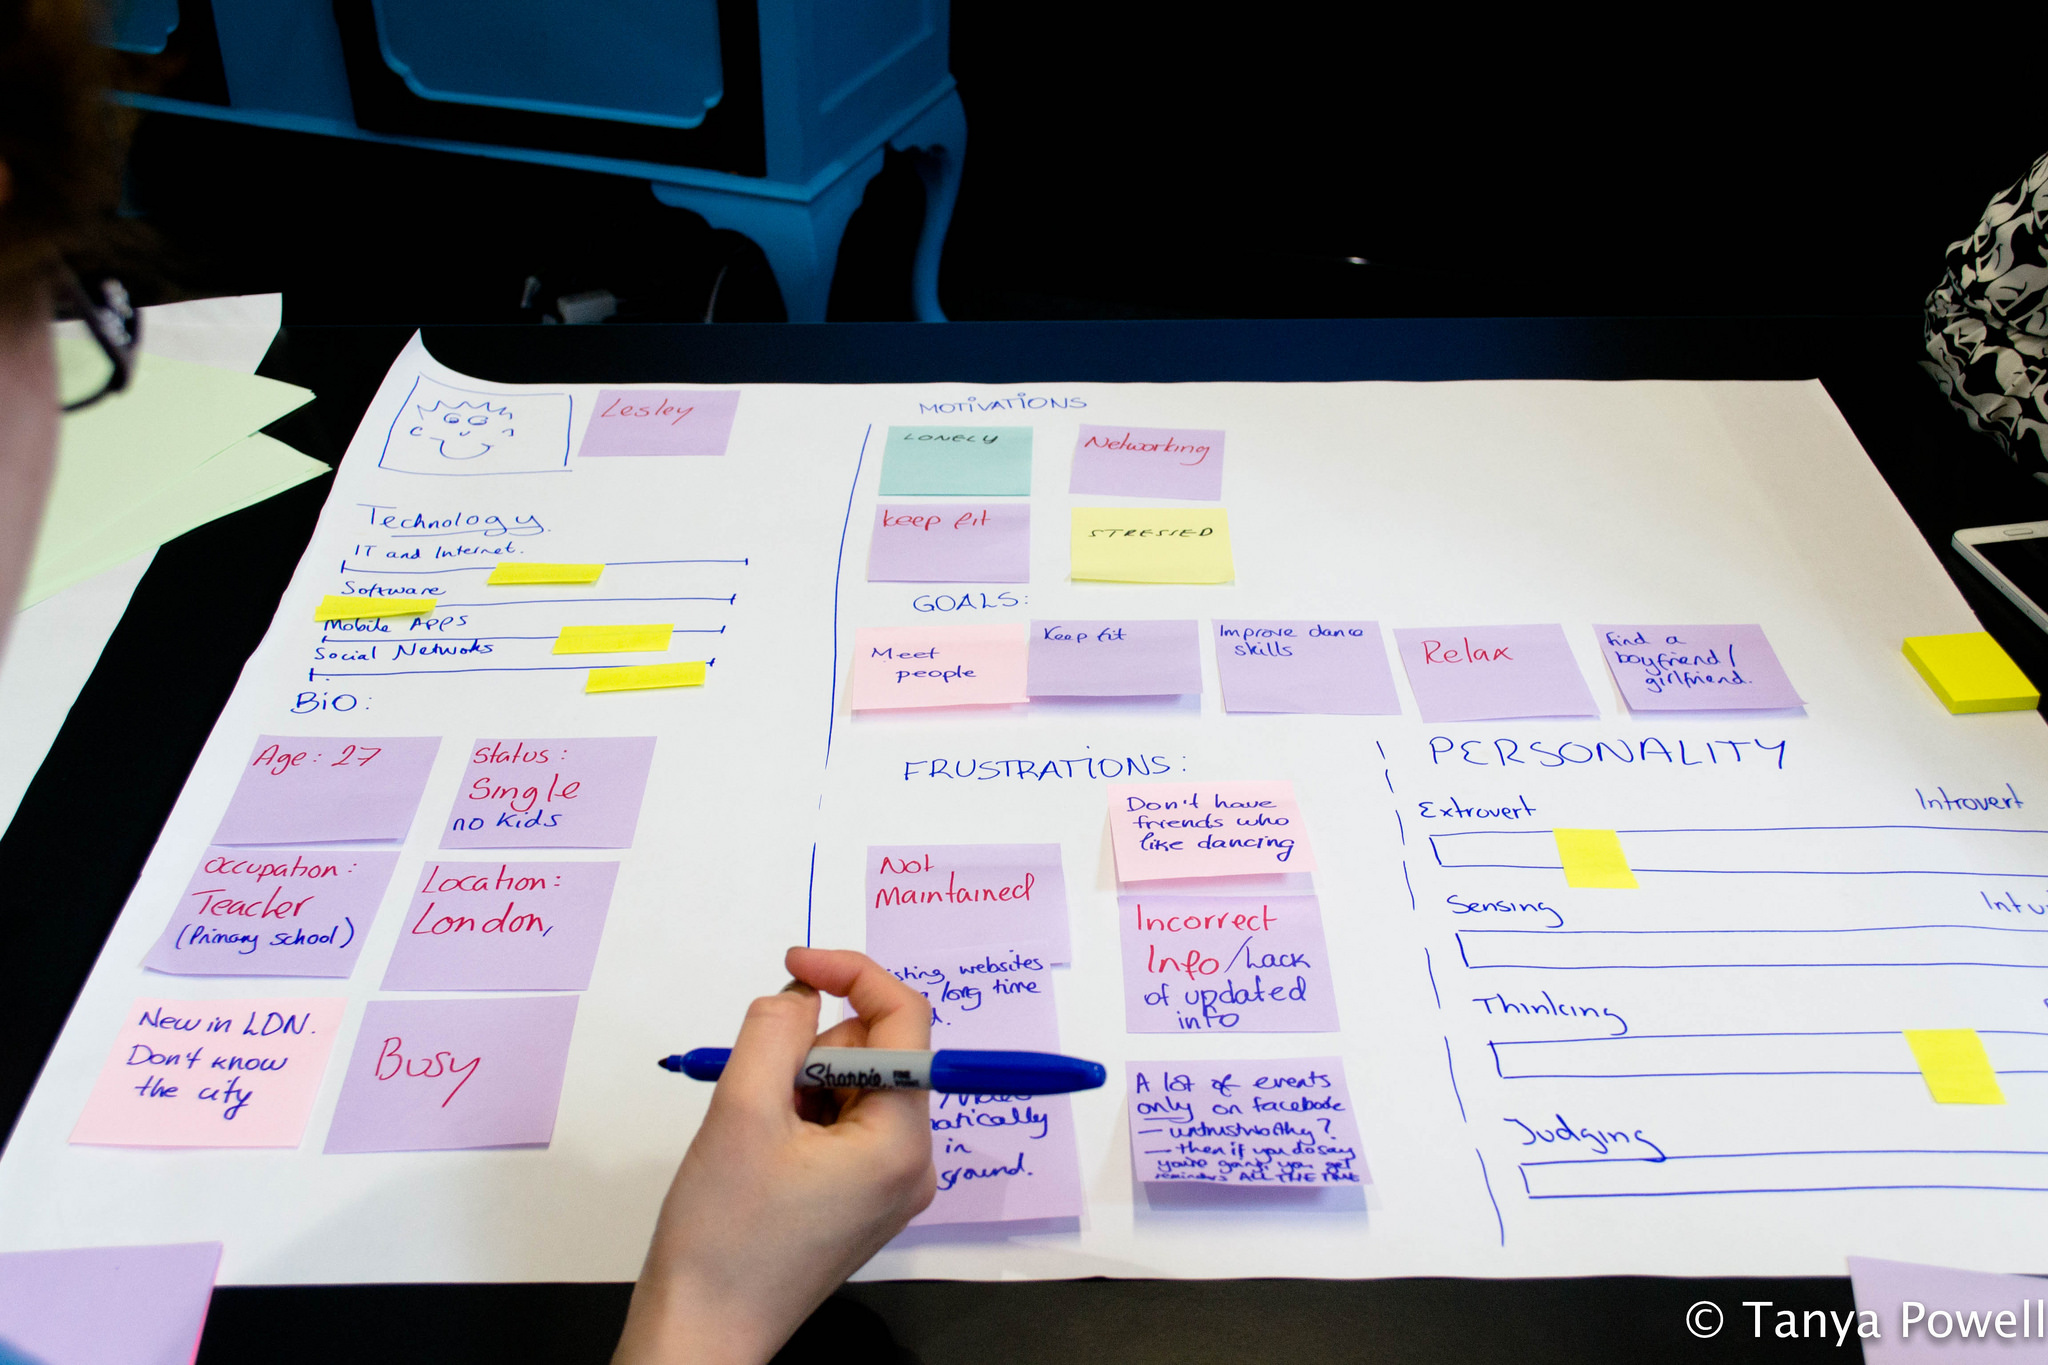 Lesley
Technology
IT and Internet.
Software
Mobile Apps
Social Networks
BiO:
Age: 27
Status:
Single
no kids
Occupation:
Teacher
(Primary school)
Location:
London,
New in LDN.
Don't know
the city
Busy
MOTIVATIONS
LONELY
Networking
keep fit
STRESSED
GOALS:
Meet
people
Keep fit
Improve dance
skills
Relax
Find a
boyfriend/
girlfriend.
FRUSTRATIONS:
Don't have
friends who
like dancing
Not
Maintained
websites
long time
Incorrect
Info/Lack
of updated
info
in
A lot of events
only on facebook
- untrustworthy?
- then if you do say
you're going, you get
reminders ALL THE TIME
PERSONALITY
Extrovert
Introvert
Sensing
Thinking
Judging
Sharpie
© Tanya Powell